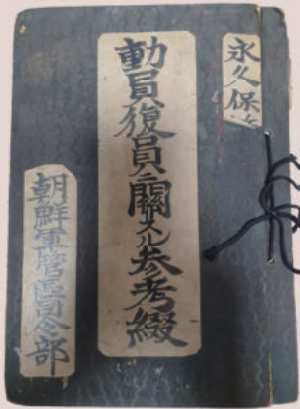 永久保
動員復員ニ關スル参考綴
朝鮮軍管區司令部